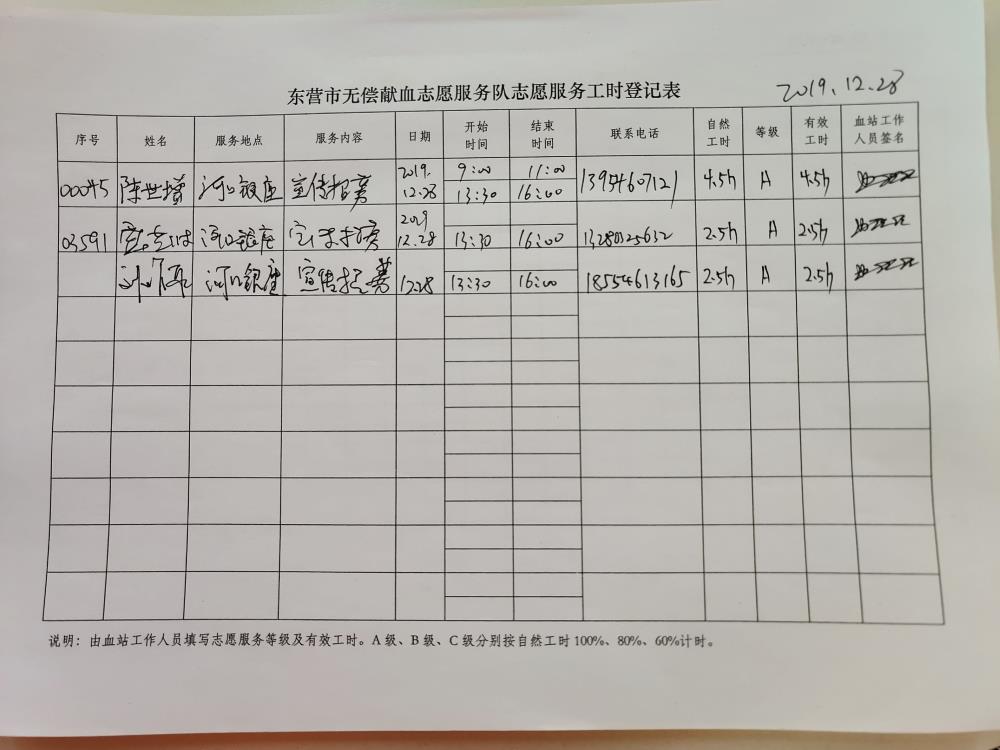 东营市无偿献血志愿服务队志愿服务工时登记表
2019.12.28
序号 姓名 服务地点 服务内容 日期 开始时间 结束时间 联系电话 自然工时 等级 有效工时 血站工作人员签名
00045 陈世增 河口银座 宣传招募 2019.12.28 9:00 11:00 13954607121 4.5h A 4.5h
13:30 16:00
03591 河口银座 宣传招募 2019 12.28 13:30 16:00 13280125632 2.5h A 2.5h
河口银座 宣传招募 12.28 13:30 16:00 18554613165 2.5h A 2.5h
说明：由血站工作人员填写志愿服务等级及有效工时。A级、B级、C级分别按自然工时100%、80%、60%计时。